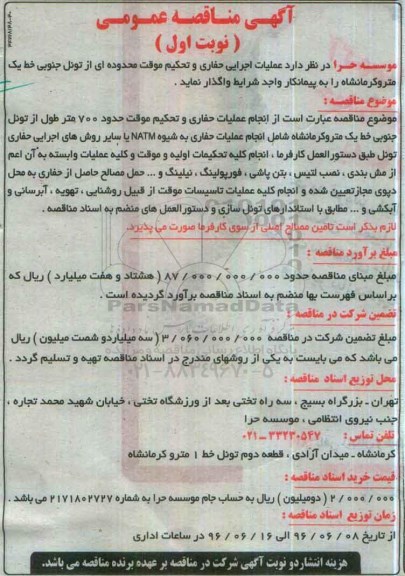 آگهی مناقصه عمومی
( نوبت اول )
موسسه حرا در نظر دارد عملیات اجرایی حفاری و تحکیم موقت محدوده ای از تونل جنوبی خط یک
متروکرمانشاه را به پیمانکار واجد شرایط واگذار نماید .
موضوع مناقصه :
موضوع مناقصه عبارت است از انجام عملیات حفاری و تحکیم موقت حدود ۷۰۰ متر طول از تونل
جنوبی خط یک متروکرمانشاه شامل انجام عملیات حفاری به شیوه NATM یا سایر روش های اجرایی حفاری
تونل طبق دستورالعمل کارفرما ، انجام کلیه تحکیمات اولیه و موقت و کلیه عملیات وابسته به آن اعم
از مش بندی ، نصب لتیس ، بتن پاشی ، فورپولینگ ، نیلینگ و ... حمل مصالح حاصل از حفاری به محل
دپوی مجازتعیین شده و انجام کلیه عملیات تاسیسات موقت از قبیل روشنایی ، تهویه ، آبرسانی و
آبکشی و ... مطابق با استانداردهای تونل سازی و دستورالعمل های منضم به اسناد مناقصه .
لازم بذکر است تامین مصالح اصلی از سوی کارفرما صورت می پذیرد.
مبلغ برآورد مناقصه :
مبلغ مبنای مناقصه حدود ۸۷/۰۰۰/۰۰۰/۰۰۰ ( هشتاد و هفت میلیارد ) ریال که
براساس فهرست بها منضم به اسناد مناقصه برآورد گردیده است .
ParsNamadData
تضمین شرکت در مناقصه :
مبلغ تضمین شرکت در مناقصه ۳/۰۶۰/۰۰۰/۰۰۰ ( سه میلیاردو شصت میلیون ) ریال
می باشد که می بایست به یکی از روشهای مندرج در اسناد مناقصه تهیه و تسلیم گردد .
۰۲۱-۸۸۳۴۹۶۷۰-۵
محل توزیع اسناد مناقصه :
تهران ـ بزرگراه بسیج ، سه راه تختی بعد از ورزشگاه تختی ، خیابان شهید محمد تجاره ،
جنب نیروی انتظامی ، موسسه حرا
تلفن تماس : ۳۳۲۳۰۵۴۷ ـ ۰۲۱
کرمانشاه ـ میدان آزادی ، قطعه دوم تونل خط ۱ مترو کرمانشاه
قیمت خرید اسناد مناقصه :
۲/۰۰۰/۰۰۰ ( دومیلیون ) ریال به حساب جام موسسه حرا به شماره ۲۱۷۱۸۰۲۷۲۷ می باشد .
زمان توزیع اسناد مناقصه :
از تاریخ ۹۶/۰۶/۰۸ الی ۹۶/۰۶/۱۶ در ساعات اداری
هزینه انتشاردو نوبت آگهی شرکت در مناقصه بر عهده برنده مناقصه می باشد.